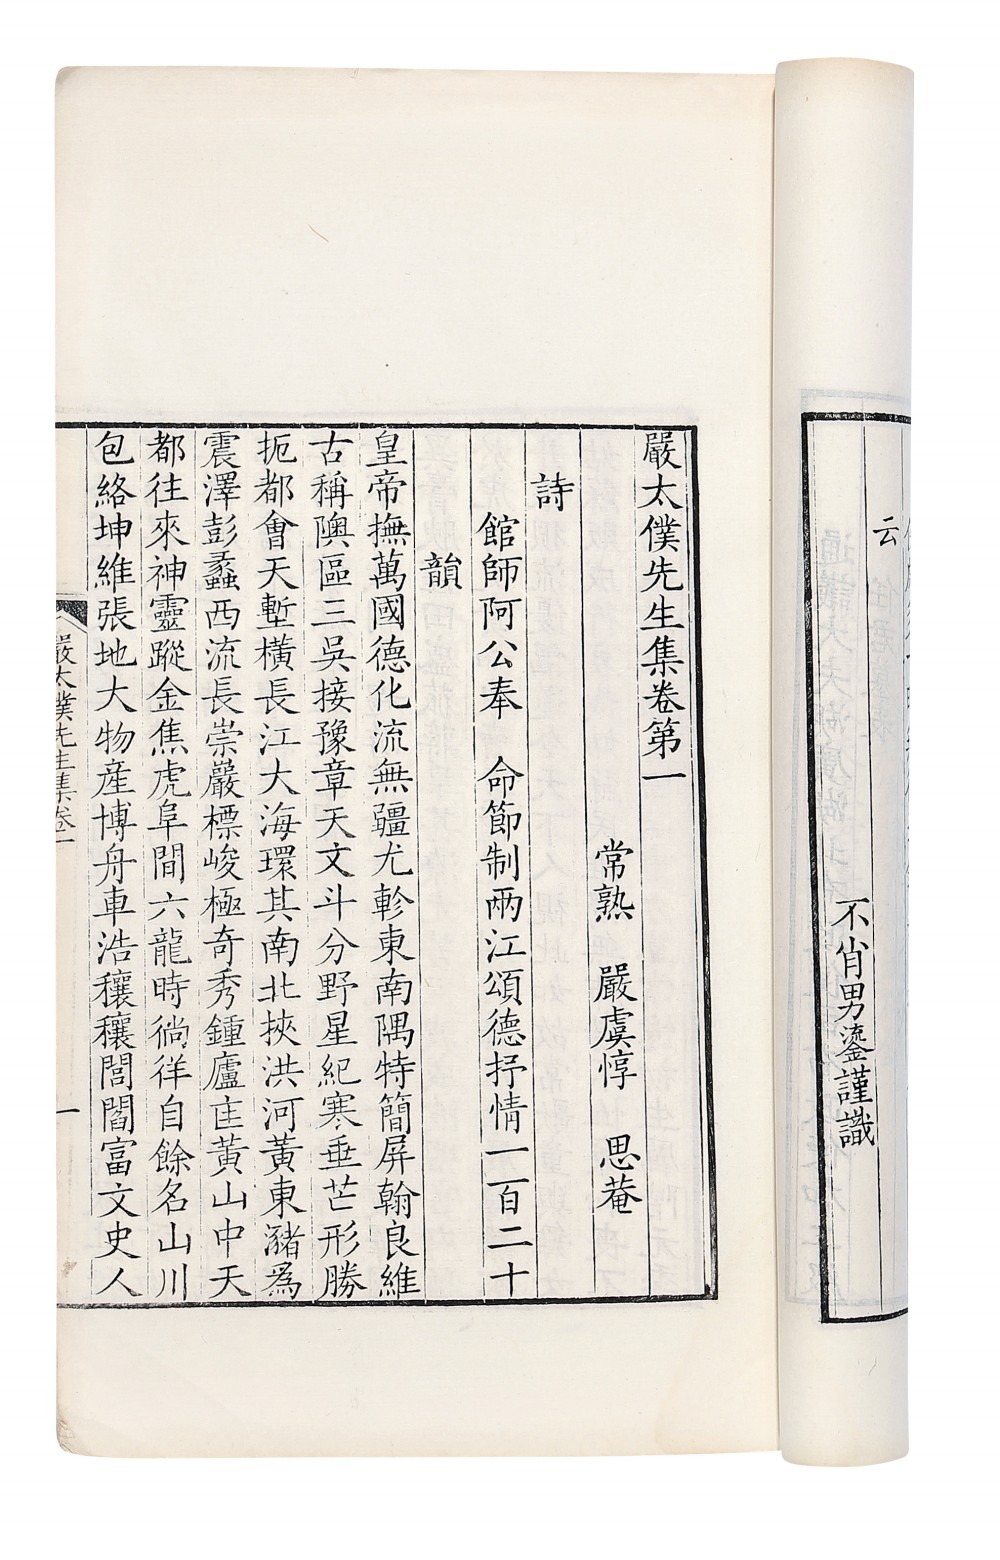 云
不肖男鎏謹識
嚴太僕先生集卷第一
常熟 嚴虞惇 思菴
詩
館師阿公奉 命節制兩江頌德抒情一百二十
韻
皇帝撫萬國德化流無疆尤軫東南隅特簡屏翰良維
古稱隩區三吳接豫章天文斗分野星紀寒垂芒形勝
扼都會天塹橫長江大海環其南北挾洪河黃東瀦為
震澤彭蠡西流長崇巖標峻極奇秀鍾廬匡黃山中天
都往來神靈蹤金焦虎阜間六龍時徜徉自餘名山川
包絡坤維張地大物產博舟車浩穰穰閭閻富文史人
嚴太僕先生集卷一
一